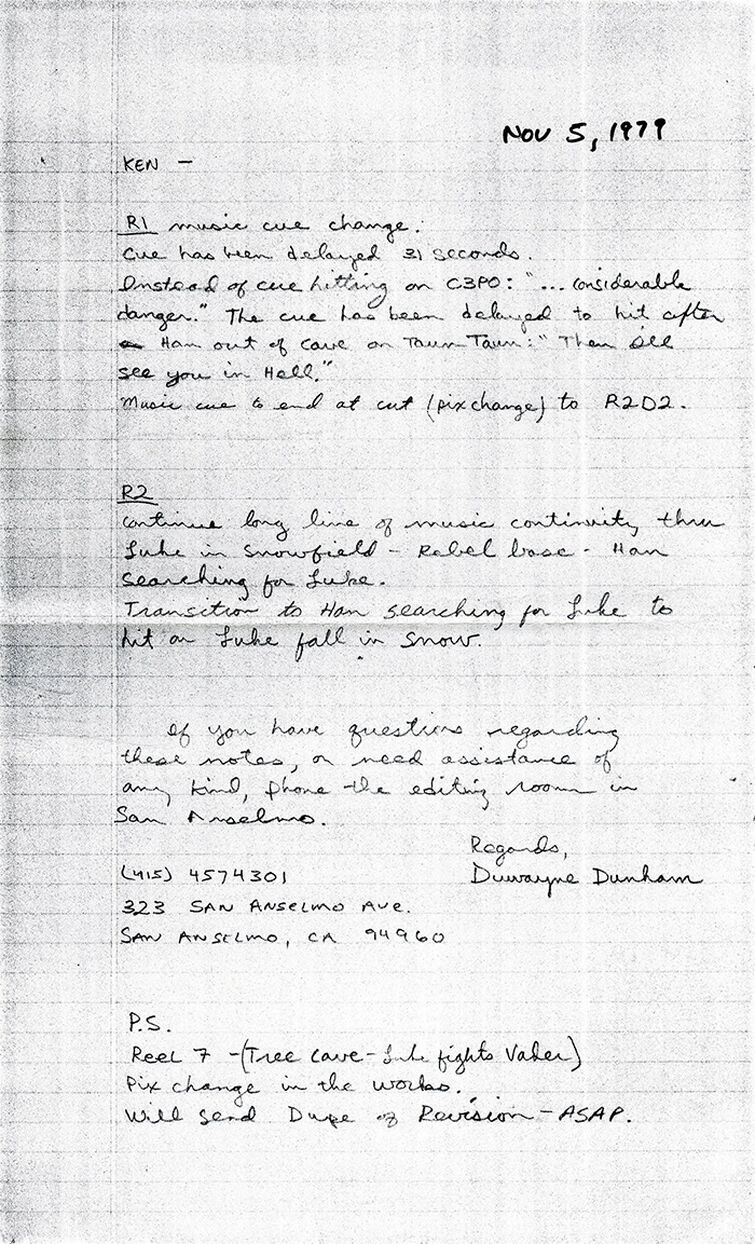 Nov 5, 1979
KEN –
R1 music cue change.
Cue has been delayed 31 seconds.
Instead of cue hitting on C3PO: "... considerable
danger." The cue has been delayed to hit after
Han out of cave on Taun Taun: "Then I'll
see you in Hell."
Music cue to end at cut (pix change) to R2D2.
R2
Continue long line of music continuity thru
Luke in snowfield – Rebel base – Han
searching for Luke.
Transition to Han searching for Luke to
hit on Luke fall in snow.
If you have questions regarding
these notes, or need assistance of
any kind, phone the editing room in
San Anselmo.
Regards,
Duwayne Dunham
(415) 4574301
323 SAN ANSELMO AVE.
SAN ANSELMO, CA 94960
P.S.
Reel 7 – (Tree Cave – Luke fights Vader)
Pix change in the works.
Will send Dupe of Revision – ASAP.